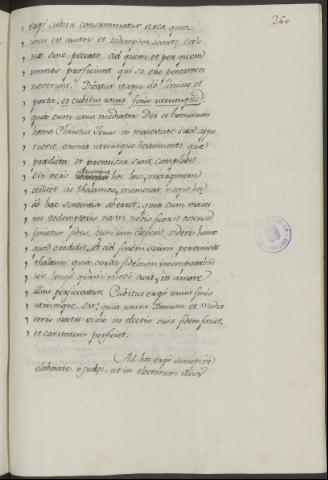 260
ergo cubitu consummatur arca quia
unus est auctor et redemptor sanctę eccle-
siæ sine peccato, ad quem et per quem
omnes proficiunt qui se esse peccatores
noverunt. Dicatur itaque de limine et
porta, et cubitus unus finis utrumque,
quia cum unus mediator Dei et hominum
homo Christus Iesus in maiestate sua appa-
ruerit, omnia utriusque testamenti, quæ
prædicta et promissa sunt, complebit.
sin vero utrumque hoc loco, marginem
scilicet ac thalamos, memorat, neque hoc
ab hac sententia aberret, quia cum maies-
tas redemptoris nostri nobis fuerit ostensa
finietur fides, cum iam cæperit videre homo
quod credidit, et ad finem suum pervenient
thalami, quia corda fidelium incomparabili-
ter, longe quam modo sunt, in amore
illius perficientur. Cubitus ergo unus finis
utrumque est, quia unitas Domini et media-
toris nostri visio in electis suis fidem finiet,
et caritatem perficiet.
Ad hoc ergo summopere
elaborate, o Iudęi, ut in electorum illius